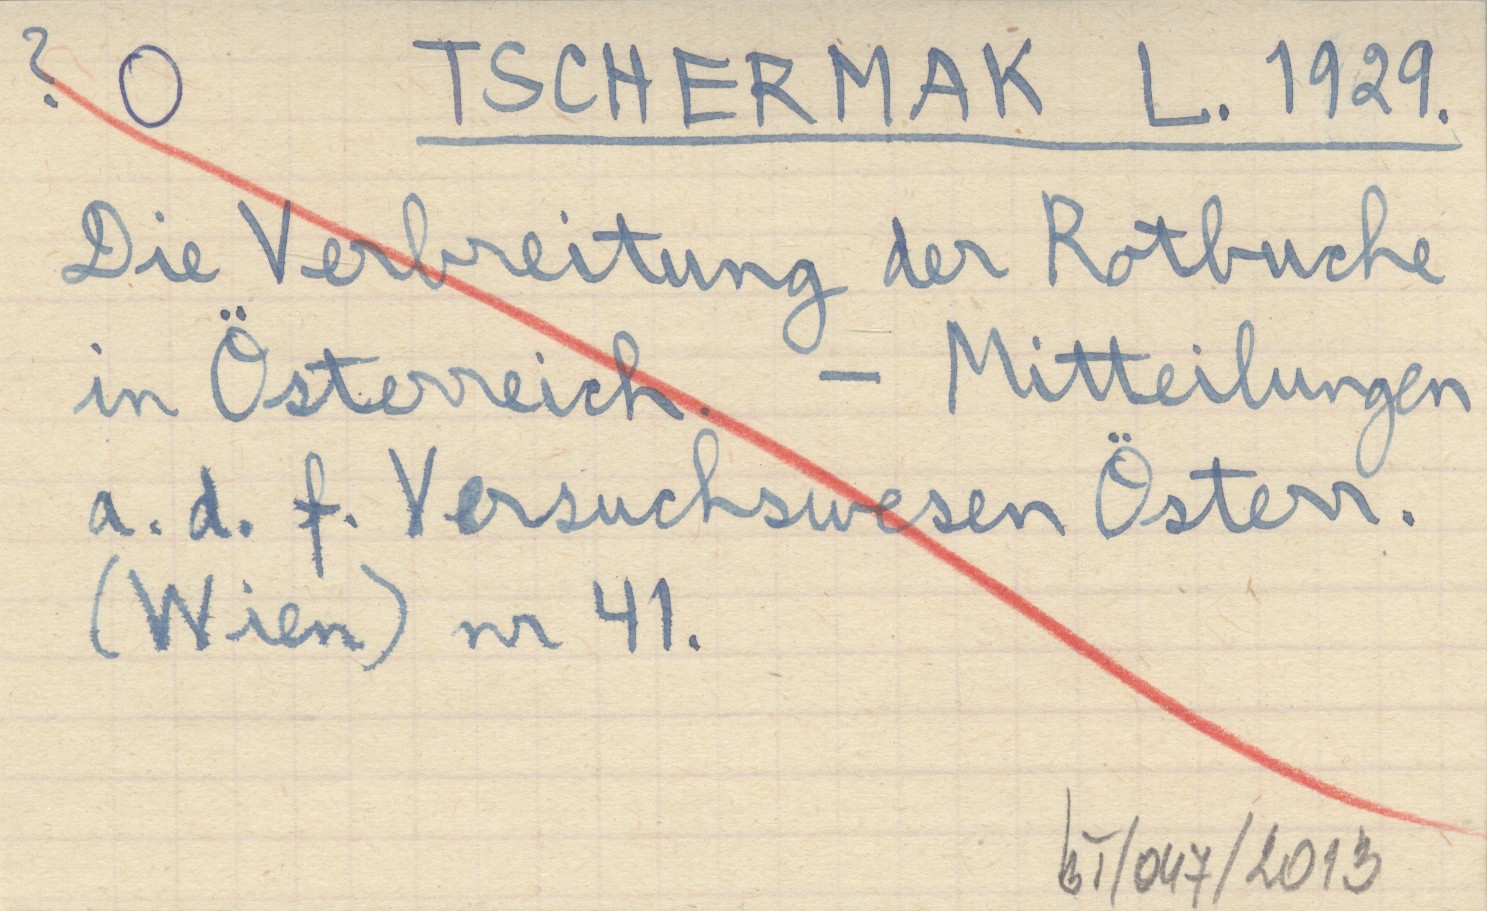 ? O TSCHERMAK L. 1929.
Die Verbreitung der Rotbuche
in Österreich. – Mitteilungen
a. d. f. Versuchswesen Österr.
(Wien) nr 41.
/047/2013